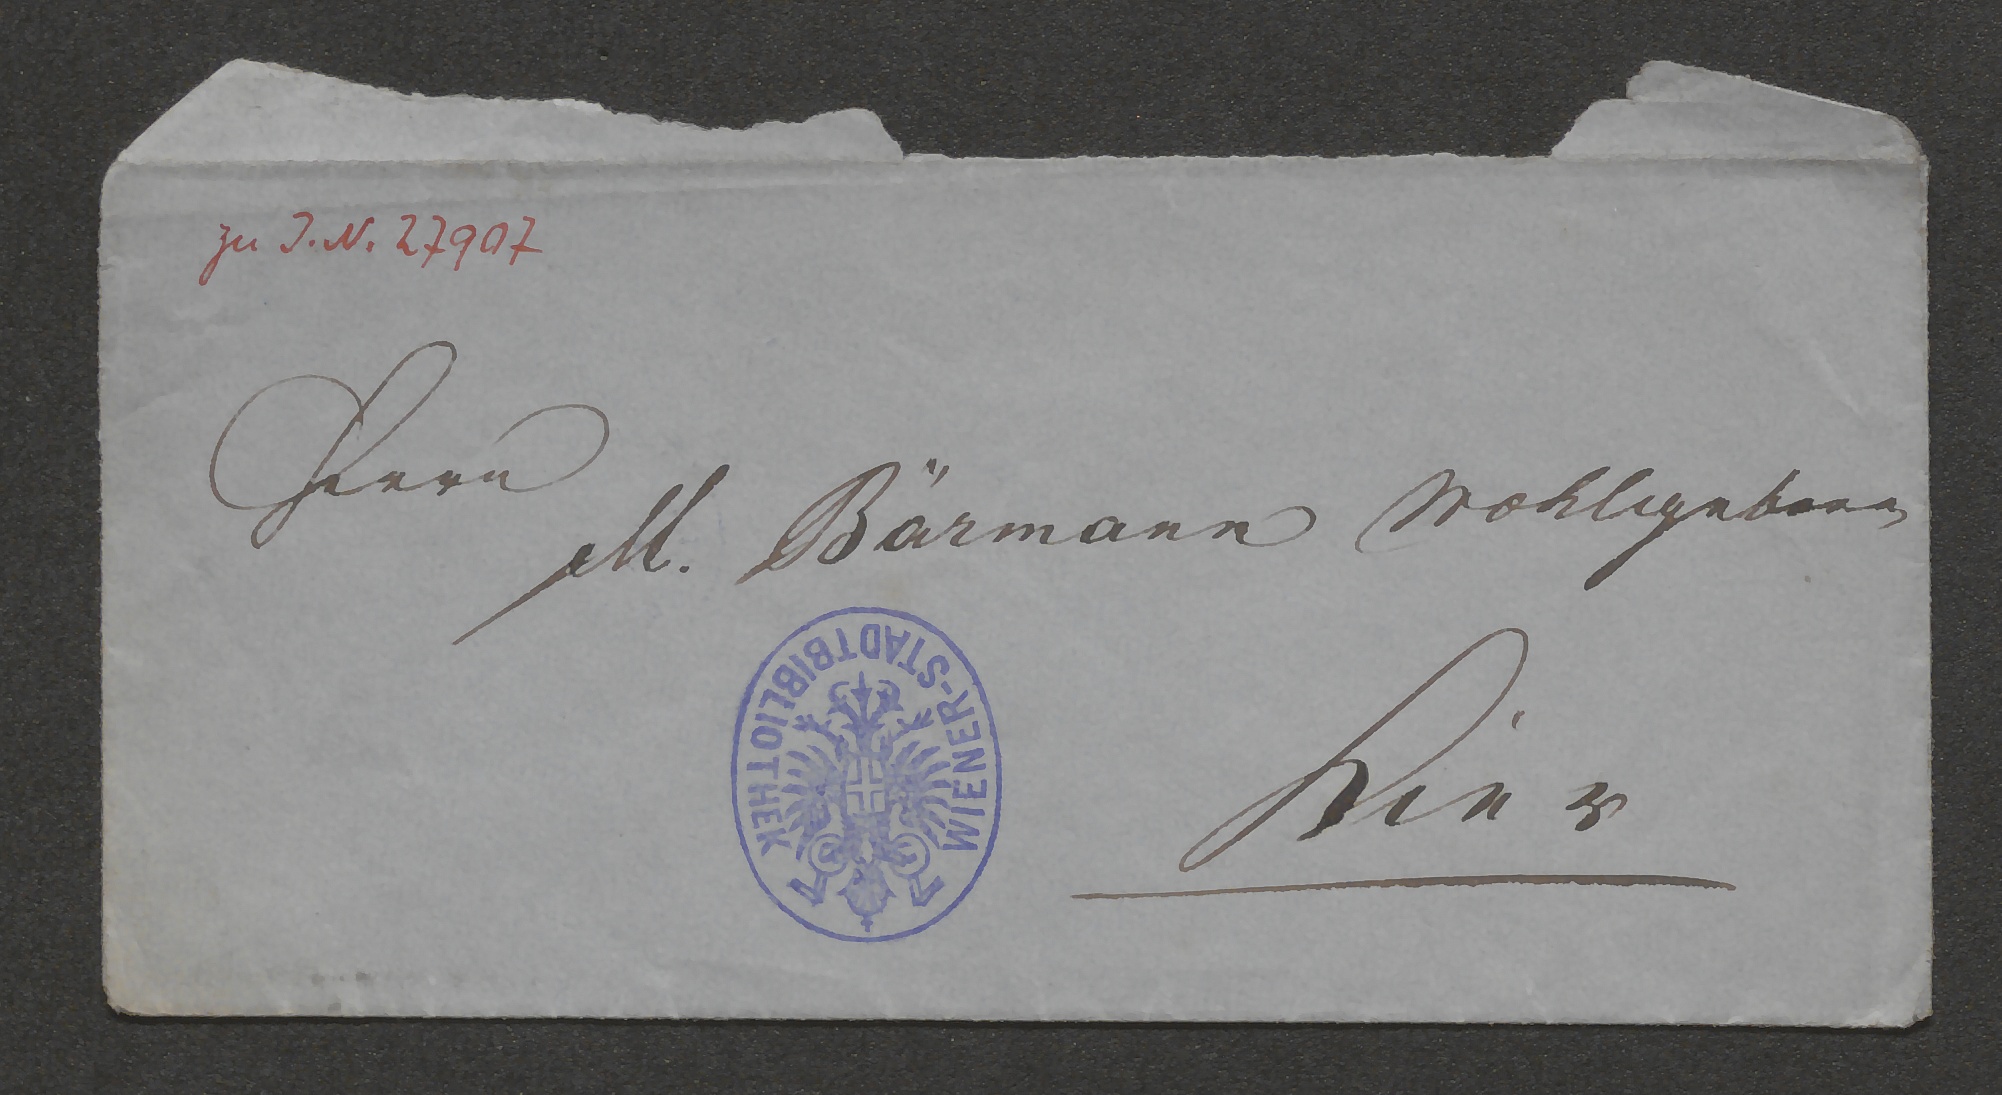 zu I.N. 27907
Herrn
M. Bärmann Wohlgeboren
WIENER-STADTBIBLIOTHEK